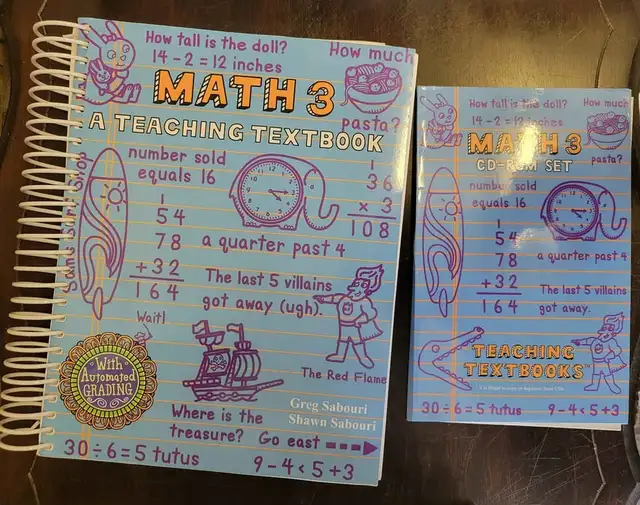 How tall is the doll?
14 - 2 = 12 inches
How much
pasta?
MATH 3
A TEACHING TEXTBOOK
number sold
equals 16
1
54
78
+32
164
1
36
× 3
108
a quarter past 4
The last 5 villains
got away (ugh).
Wait!
The Red Flame
With
Automated
GRADING
Greg Sabouri
Shawn Sabouri
Where is the
treasure? Go east
30 ÷ 6 = 5 tutus
9 - 4 < 5 + 3
How tall is the doll?
14 - 2 = 12 inches
How much
pasta?
MATH 3
CD-ROM SET
number sold
equals 16
1
54
78
+32
164
a quarter past 4
The last 5 villains
got away.
TEACHING
TEXTBOOKS™
30 ÷ 6 = 5 tutus
9 - 4 < 5 + 3